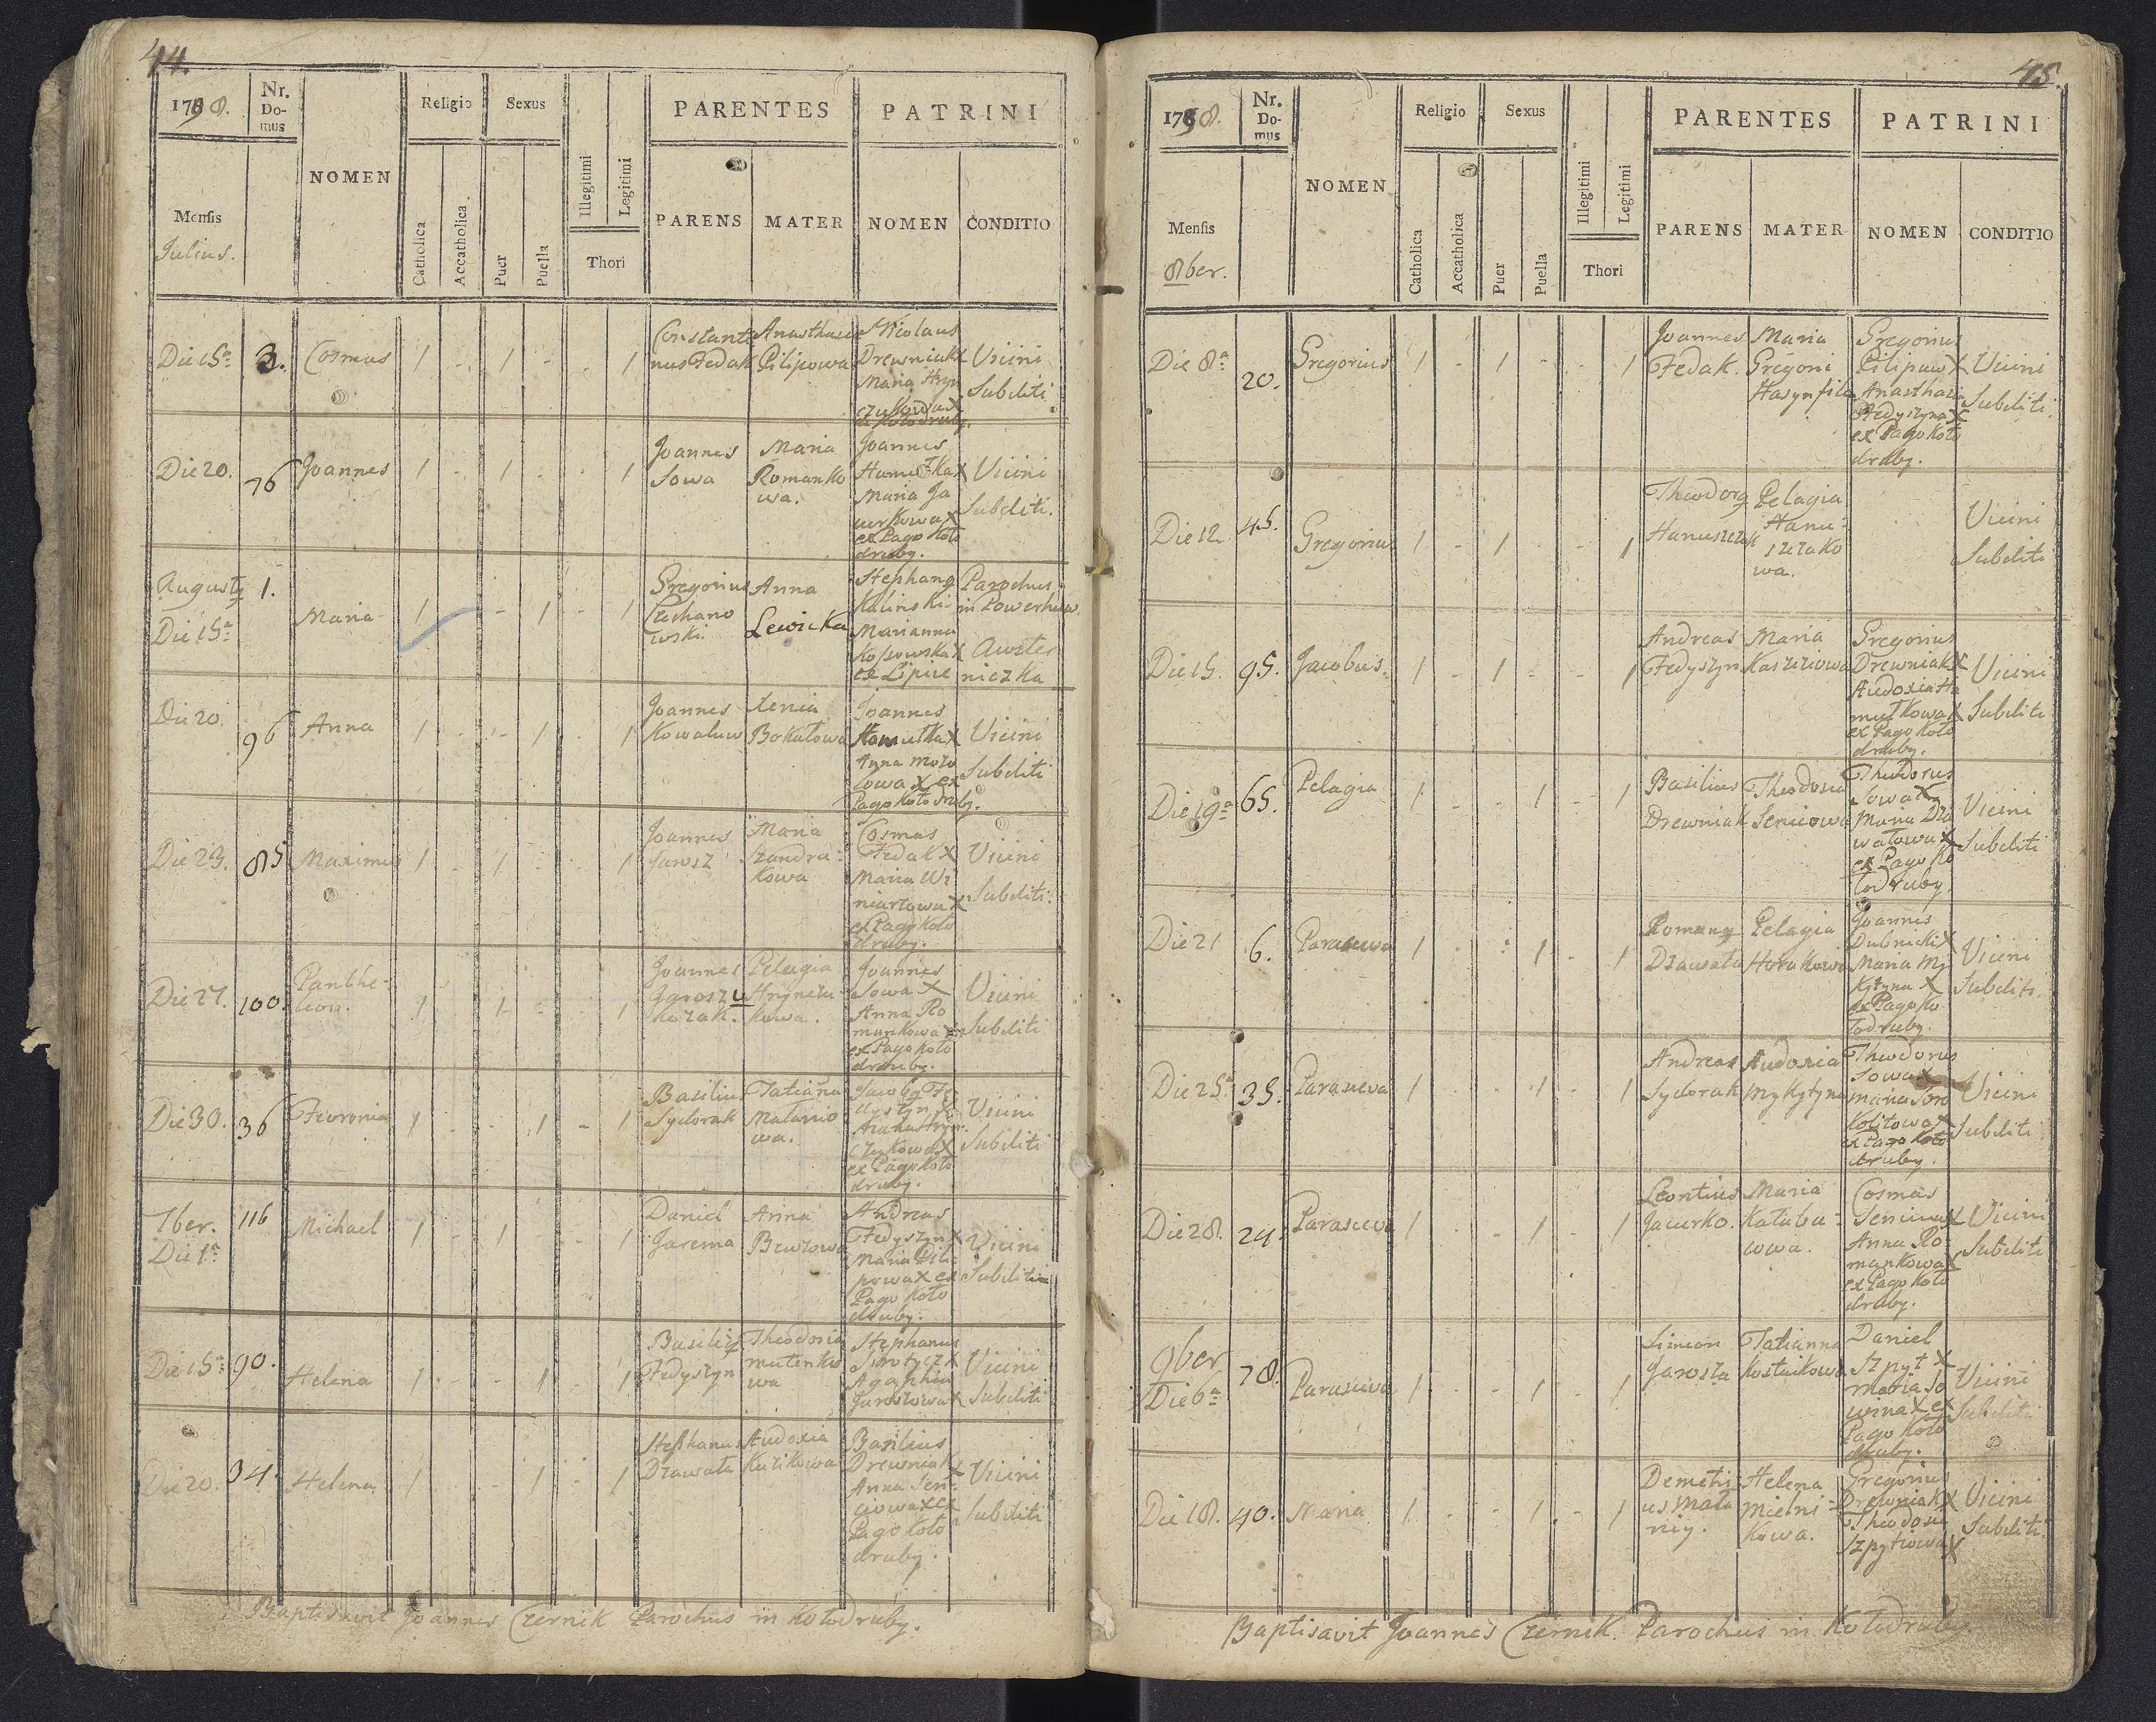 44.
1798.
Nr. Domus
NOMEN
Religio
Sexus
PARENTES
PATRINI
Mensis
Julius.
Catholica
Accatholica
Puer
Puella
Illegitimi
Legitimi
Thori
PARENS
MATER
NOMEN
CONDITIO
Die 15ª 3. Cosmas 1 - 1 - - 1
Constanti
nus Fedak
Anasthasia
Pilipowa
Nicolaus
Drewniak X
Maria Hryn
czukowa X
Vicini
Subditi
Die 20. 76 Joannes 1 - 1 - - 1
Joannes
Sowa
Maria
Romanko
wa.
Joannes
Hamutka X
Maria Ja
curkowa X
ex Pago Koło
druby.
Vicini
Subditi.
Augusty
Die 15ª 1. Maria 1 - - 1 - 1
Gregorius
Czechano
wski.
Anna
Lewicka
Stephanq
Kalinski
Marianna
Kossowska X
ex Lipice
Parochus
in Powerhow.
Auster
niczka
Die 20. 96 Anna 1 - - 1 - 1
Joannes
Kowaluw
Xenia
Bokałowa
Joannes
Hamutka X
Anna
lowa X ex
Pago Kołodruby.
Vicini
Subditi
Die 23. 85 Maximus 1 - 1 - - 1
Joannes
Jarosz
Maria
Szandra-
kowa
Cosmas
Fedak X
Maria Wi
niarzowa X
ex Pago Koło
druby.
Vicini
Subditi.
Die 27. 100. Panthe-
leon. 1 - 1 - - 1
Joannes
Jarosz v
Kozak.
Pelagia
Hrynczu-
kowa.
Joannes
Sowa X
Anna Ro
mankowa X
ex Pago Koło
druby.
Vicini
Subditi
Die 30. 36 Fevronia 1 - - 1 - 1
Basilius
Sydorak
Tatiana
Matanio
wa.
czukowa X
ex Pago Koło
druby.
Vicini
Subditi
7ber.
Die 1ª 116 Michael 1 - 1 - - 1
Daniel
Jarema
Anna
Andreas
Fedyszyn X
Maria Pili-
powa X ex
Pago Koło
druby.
Vicini
Subditi
Die 15ª 90. Helena 1 - - 1 - 1
Fedyszyn
Theodosia
wa
Stephanus
Agaphia
Jaroszowa X
Vicini
Subditi
Die 20. 34. Helena 1 - - 1 - 1
Stephanus
Dzawała
Audoxia
Basilius
Drewniak X
Anna Sen-
ciowa X ex
Pago Koło
druby.
Vicini
Subditi
Baptisavit Joannes Czernik Parochus in Kołodruby.
45.
1798.
Nr. Domus
NOMEN
Religio
Sexus
PARENTES
PATRINI
Mensis
8ber.
Catholica
Accatholica
Puer
Puella
Illegitimi
Legitimi
Thori
PARENS
MATER
NOMEN
CONDITIO
Die 8ª 20. Gregorius 1 - 1 - - 1
Joannes
Fedak.
Maria
Gregori
Hasyn filia
Gregorius
Pilipuw X
Anasthasia
Fedyszyna X
ex Pago Koło
druby.
Vicini
Subditi.
Die 12. 45. Gregorius 1 - 1 - - 1
Theodorq
Hanuszczak
Pelagia
Hanu-
szczako
wa.
Vicini
Subditi
Die 15. 95. Jacobus. 1 - 1 - - 1
Andreas
Fedyszyn
Maria
Kaszciowa
Gregorius
Drewniak X
Audoxia Ha
mutkowa X
ex Pago Koło
druby.
Vicini
Subditi
Die 19ª 65. Pelagia 1 - - 1 - 1
Basilius
Drewniak
Theodosia
Senciowa
Theodorus
Sowa X
Maria Dza
wałowa X
ex Pago Ko
łodruby.
Vicini
Subditi
Die 21 6. Parasceva 1 - - 1 - 1
Romanq
Dzawała
Pelagia
Horakowa
Joannes
Dubnicki X
Maria My
kytyna X
ex Pago Ko
łodruby.
Vicini
Subditi.
Die 25ª 35. Parasceva 1 - - 1 - 1
Andreas
Sydorak
Audoxia
Mykytyna
Theodorus
Sowa X
Maria Soro
kolitowa X
ex Pago Koło
druby.
Vicini
Subditi
Die 28. 24. Parasceva 1 - - 1 - 1
Leontius
Jacurko.
Maria
Kałabu-
wwa.
Cosmas
Senciuw X
Anna Ro-
mankowa X
ex Pago Koło
druby.
Vicini
Subditi
9ber
Die 6ª 78. Parasceva 1 - - 1 - 1
Simeon
Jarosza
Tatianna
Kostiukowa
Daniel
Szpyt X
Maria So
wina X ex
Pago Koło
druby.
Vicini
Subditi
Die 18. 40. Maria 1 - - 1 - 1
Demetri
us Mata
niy.
Helena
Mielni-
kowa.
Gregorius
Drewniak X
Theodosia
Szpytiowa X
Vicini
Subditi.
Baptisavit Joannes Czernik. Parochus in Kołodruby.